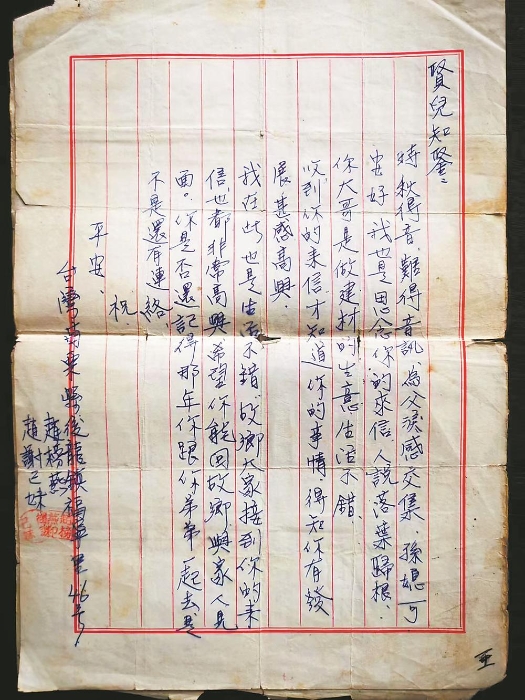 賢兒知鑒：
時秋得音，難得音訊，為父淚感交集，孫媳可
安好 我也是思念你的來信，人說落葉歸根，
你大哥是做建材的生意，生活不錯，
收到你的來信，才知道你的事情，得知你有發
展甚感高興．
我在此也是生活不錯，故鄉大家接到你的來
信也都非常高興希望你能回故鄉與家人見
面。你是否還記得那年你跟你弟弟一起去
不是還有連絡，
祝
平安、
台灣苗栗縣後龍鎮福寧里46号，
趙榜
趙謝己妹